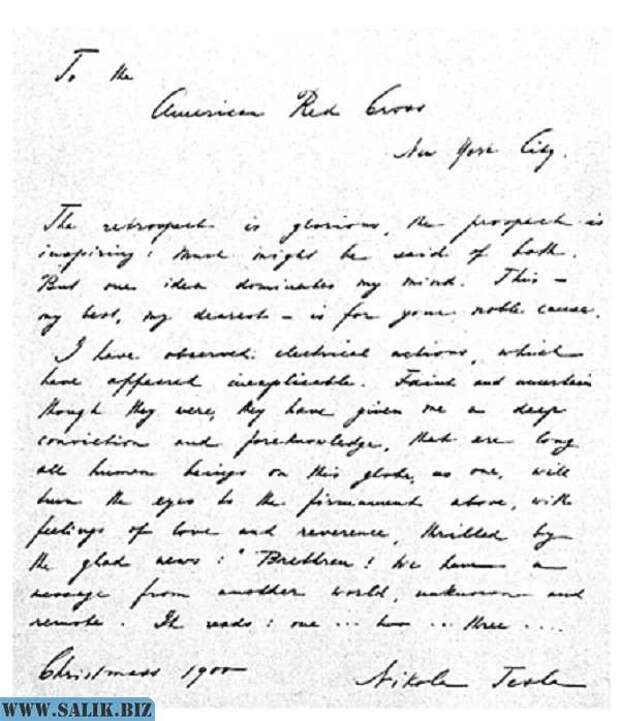 To the
American Red Cross
New York City.
The retrospect is glorious, the prospect is
inspiring: Much might be said of both.
But one idea dominates my mind. This -
my best, my dearest - is for your noble cause.
I have observed electrical actions, which
have appeared inexplicable. Faint and uncertain
though they were, they have given me a deep
conviction and foreknowledge, that ere long
all human beings on this globe, as one, will
turn the eyes to the firmament above, with
feelings of love and reverence, thrilled by
the glad news: "Brethren! We have a
message from another world, unknown and
remote. It reads: one ... two ... three ....
Christmas 1900
Nikola Tesla
WWW.SALIK.BIZ